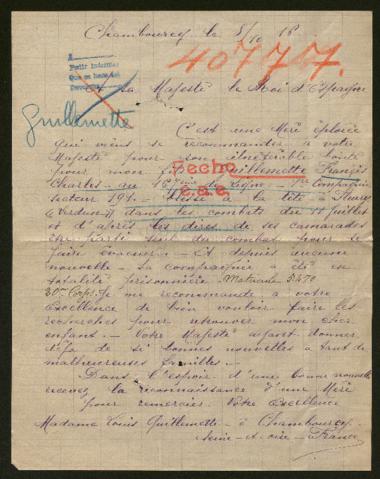 Chambourcy le 8/10 16
40777.
A
Pedir informes
Que se hace del
Sa Majesté le Roi d'Espagne
Guillemette
C'est une Mère éplorée
qui viens se recommander à votre
Majesté pour son bonté
pour mon fils Guillemette François
Charles au de Ligne Compagnie
secteur 194. blessé à la tête à Fleury
(Verdun) dans les combats du 11 juillet
et d'après les dires de ses camarades
été parti du combat pour se
faire évacuer. Et depuis aucune
nouvelle. La compagnie a été en
totalité prisonnière Matricule 5470
Corps. Je me recommande à votre
Excellence de bien vouloir faire les
recherches pour retrouver mon cher
enfant. Votre Majesté ayant donner
déjà de si bonnes nouvelles à tant de
malheureuses familles.
Dans l'espoir d'une bonne nouvelle
recevez la reconnaissance d'une Mère
pour remercier Votre Excellence
Madame Louis Guillemette à Chambourcy
Seine-et-Oise France
Fecho